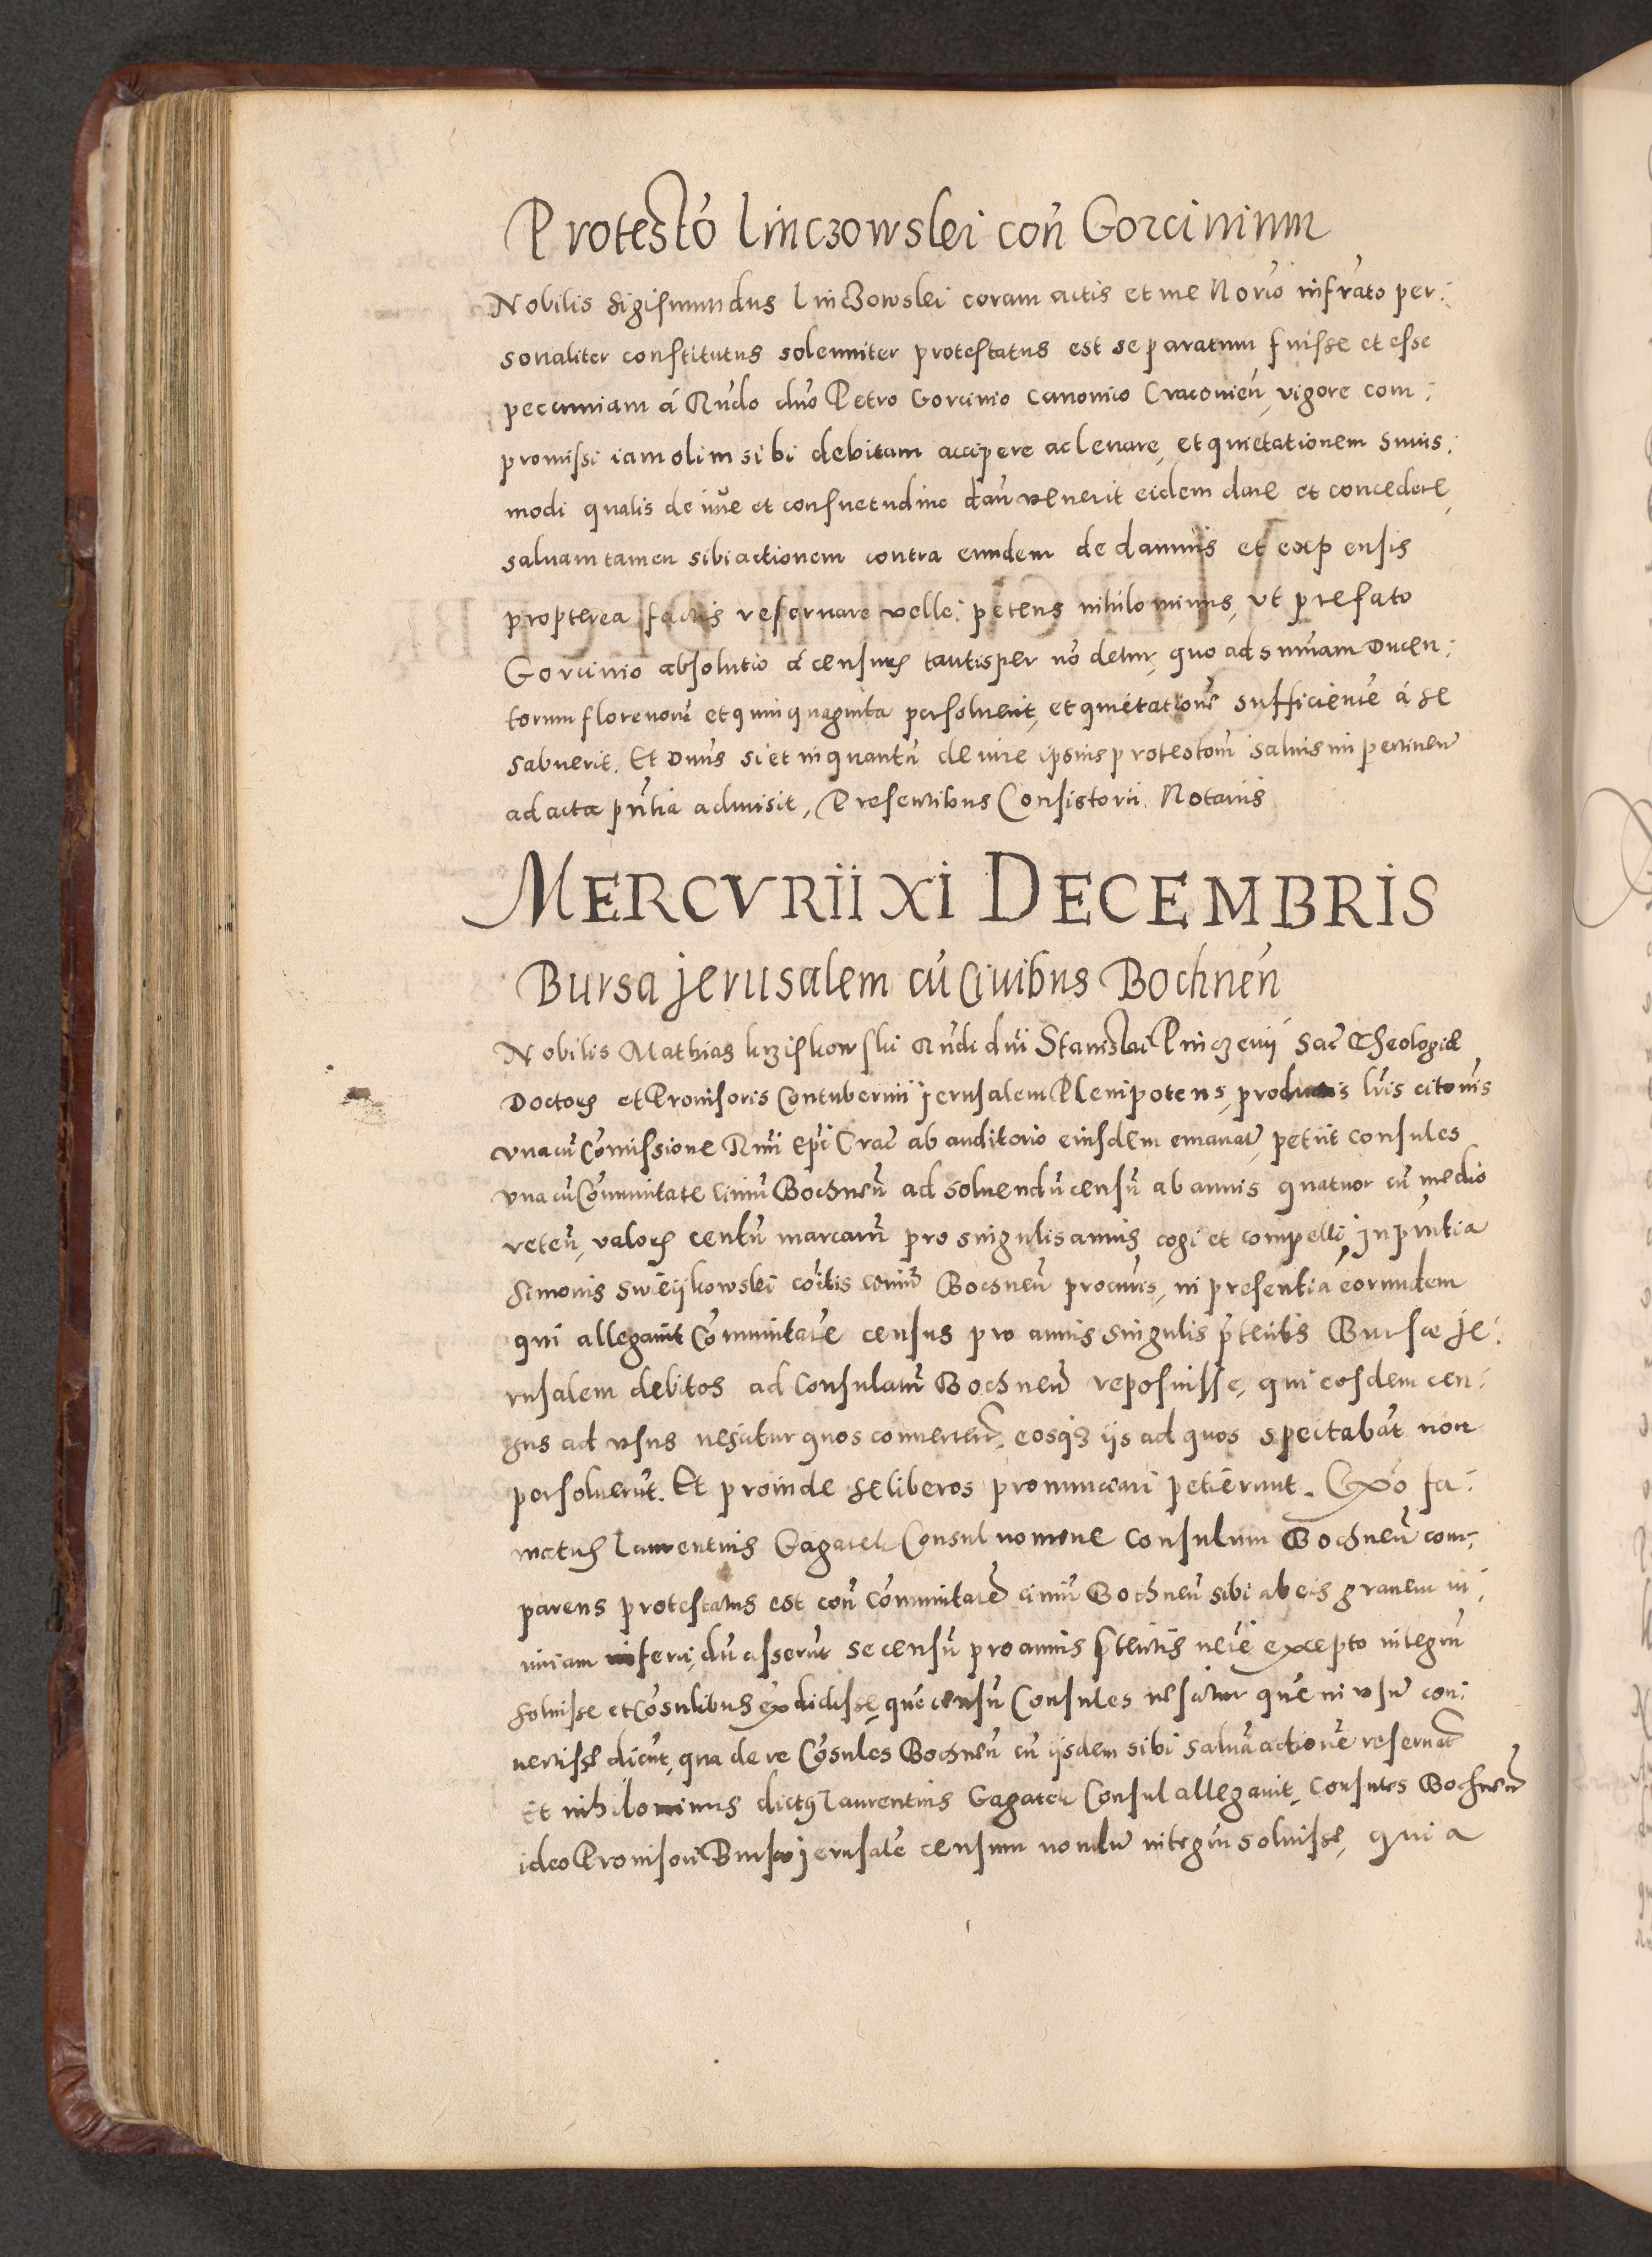 Protestō Linczowskei con̄ Gorcinium
Nobilis Sigismundus Linczowskei coram actis et me Norio infrato per:
sonaliter constitutus solenniter protestatus est se paratum fuisse et esse
pecuniam á Rndo dno Petro Gorcinio Canonico Cracovien̄, vigore com:
promissi iam olim sibi debitam accipere ac levare, et quietationem suius:
modi qualis de iure et consuetudine venerit eidem dare et concedere,
salvam tamen sibi actionem contra eundem de damnis et expensis
propterea factis reservare velle: petens nihilominus, ut prefato
Gorcinio absolutio á censuris tantisper nō detur, quo ad summam Ducen:
torum florenorū et quinquaginta persolverit, et quietationē sufficientē á se
habuerit. Et Dnus si et in quantū de iure ipsius protestom salvis impertinen̄
ad acta pn̄tia admisit, Presentibus Consistorii Notariis
MERCVRII XI DECEMBRIS
Bursa Jerusalem cū Civibus Bochnen̄
Nobilis Mathias krziskowski Rndi dni Stanislai Pniczewij Sac̄ Theologiæ
Doctoris et Provisoris Contubernii Jerusalem Plenipotens, productis lris citoriis
vna cū Comissione Rmi Epi Crac̄ ab auditorio eiusdem emanatis, petiit consules
vna cū Cōmunitate civiū Bochnen̄ ad solvendū censū ab annis quatuor cū medio
reten̄, valoris centū marcarū pro singulis annis cogi et compelli, In pn̄tia
Simonis Swieijkowskei cōitis civiū Bochnen̄ procuris, in presentia eorundem
qui allegavit Cōmunitatē census pro annis singulis pr̄teritis Bursæ Je:
rusalem debitos ad Consulatū Bochnen̄ reposuisse, qui eosdem cen:
sus ad usus nescitur quos converterūt, eosq3 iis ad quos spectabāt non
persolverūt. Et proinde se liberos pronunciari petierunt. Exo fa:
matus Laurentius Gagatek Consul nomine Consulum Bochnen̄ com:
parens protestatus est con̄ Cōmunitatē civiū Bochnen̄ sibi ab eis gravem in:
iuriam inferri, dū asserūt se censū pro annis pr̄teritis excepto integrū
solvisse et Cōsulibus extradidisse, quē censū Consules nescitur quē in usū con:
vertisse dicūt, qua de re Cōsules Bochnen̄ cū iisdem sibi salvā actionē reservāt
Et nihilominus dictus Laurentius Gagatek Consul allegavit, Consules Bochnen̄
ideo Provisori Bursæ Jerusalē censum nondū integrū solvisse, quia